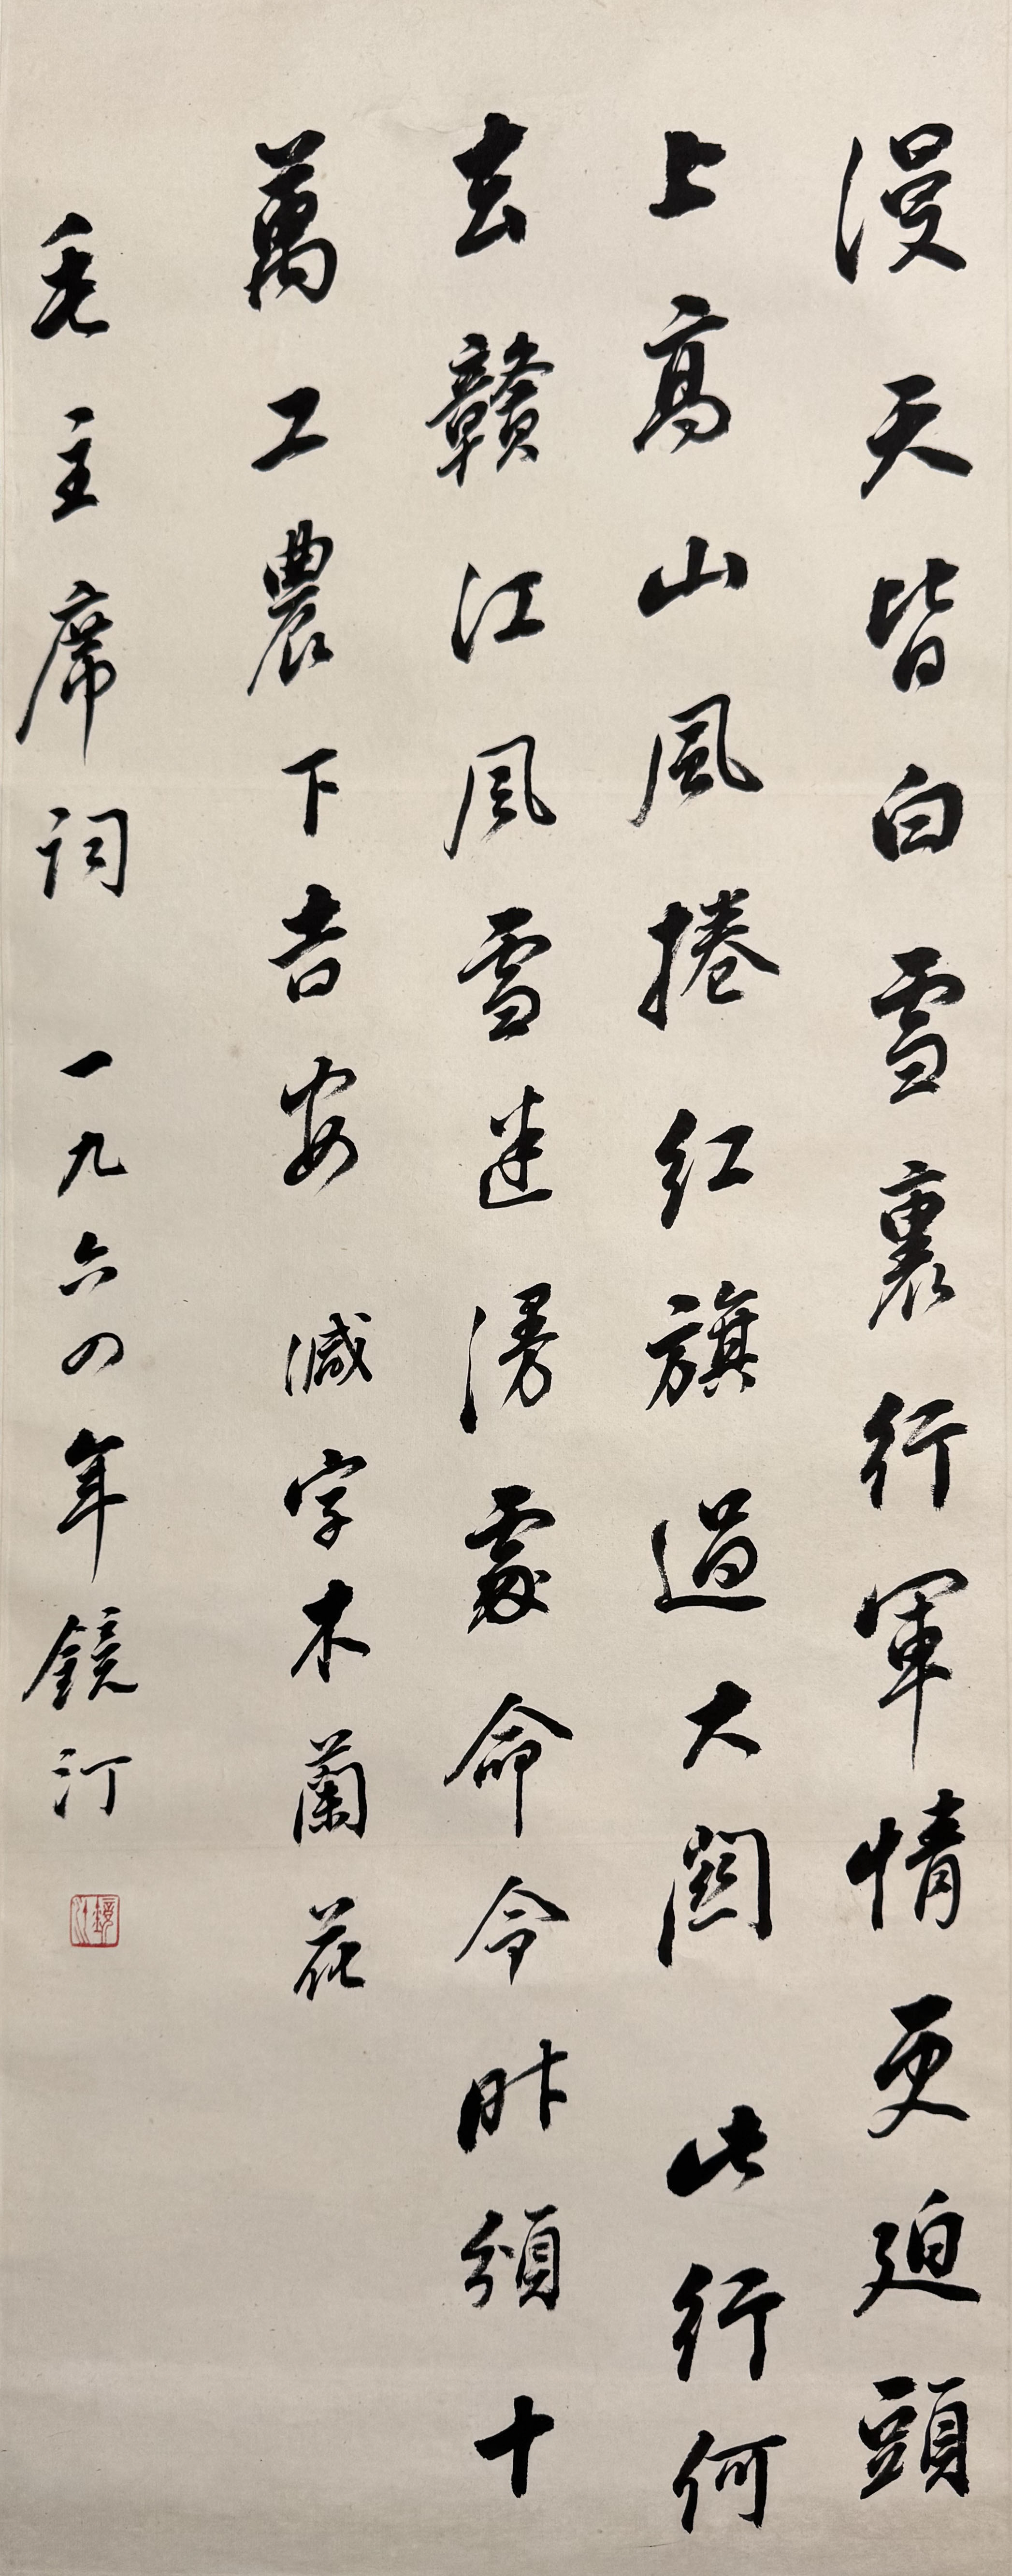 漫天皆白雪裏行軍情更迫頭
上高山風捲紅旗過大關 此行何
去贛江風雪迷漫處命令昨頒十
萬工農下吉安 減字木蘭花
毛主席詞 一九六四年鏡汀
鏡汀